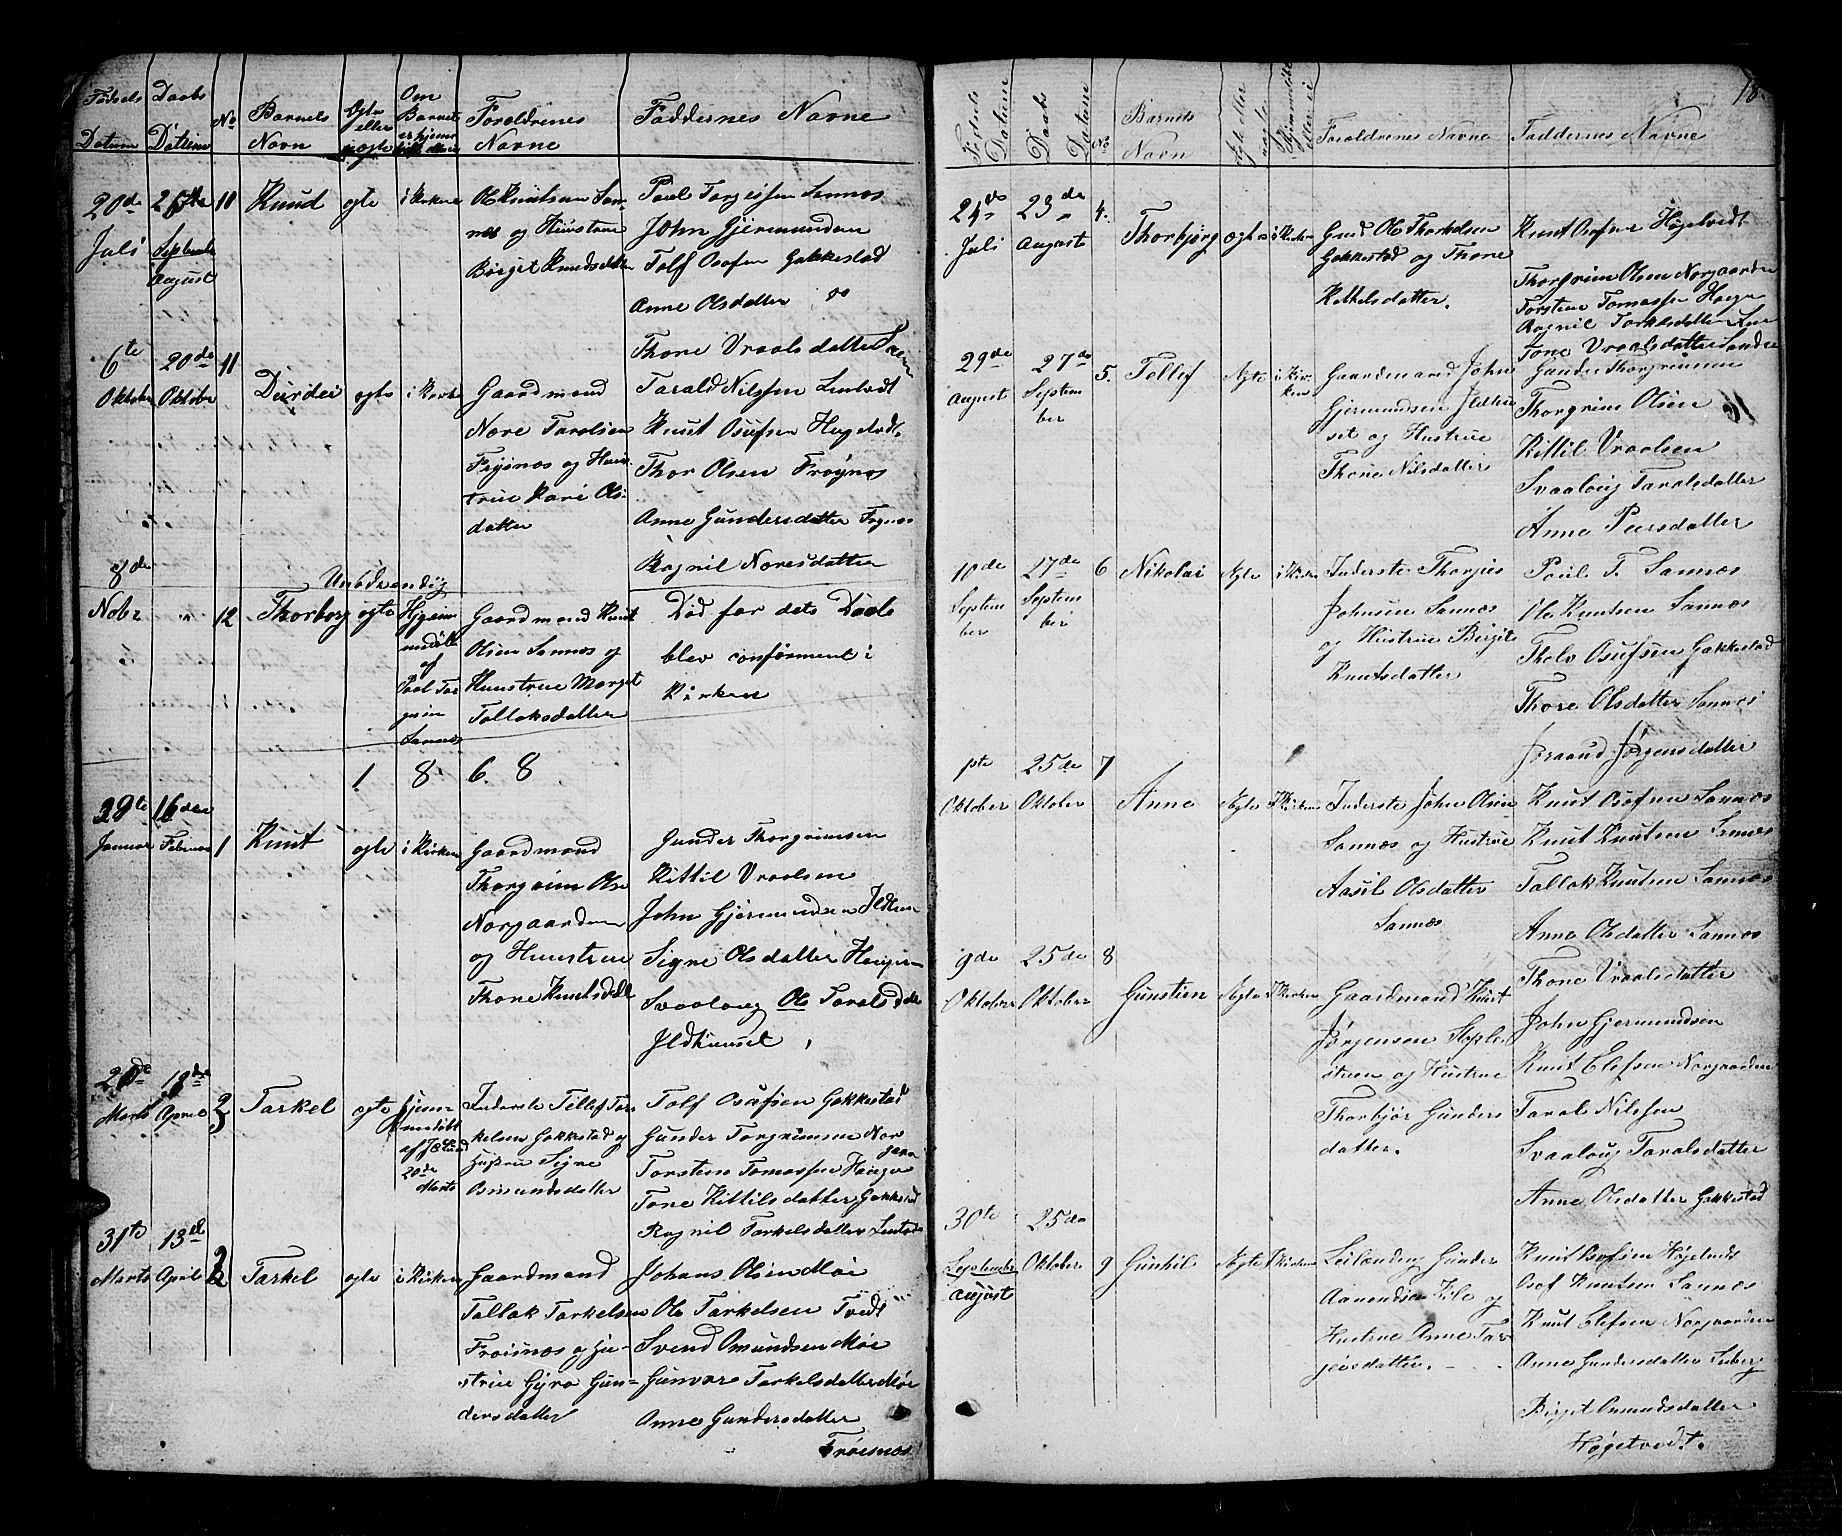 Fødsels Datum
Daabs Datum
No
Barnets Navn
Ogte eller uogte
Om Barnet er hjemmedøbt
Foroldrenes Navne
Faddernes Navne
20de Juli
August
Knud
ogte
i Kirken
Ole Knutsen San-
næs og Hunstrue
Børget Knudsdatter
Poul Torgussen Sannæs
John Gjermunden
Tolf Osofsen Gakkestad
Anne Olsdatter do
Thone Vraalsdatter
6te Oktober
20de Oktober
11
Durdei
ogte
i Kirken
Gaardmand
Nære Tarolsen
Frøsnæs og Hun-
true Kari Ols-
datter
Tarald Nilssen Lintvedt
Knut Osufsen Høgetvedt
Thor Olsen Frøynæs
Anne Gundersdatter Frøynæs
Rognil Noresdatter
8de Nobr
"
12
Thorborg
ogte
Hjemmedøbt
af
Poul Tor
Sannæs
Gaardmand Knut
Olsen Sannæs og
Hunstrue Marget
Tallaksdatter
Død før dets Daab
blev conførment i
Kirken
1. 8 6. 8
Januar
16den Februar
1
Knut
ogte
i Kirken
Gaardmand
Thorgrim Olse
Norgaarden
og Hunstrue
Thone Knutsdatt
Gunder Thorgrimsen
Kittil Vraalsen
John Gjermundsen
Signe Olsdatter
Svaaloug Ole Taralsd
Marts
April
Tarkel
ogte
hjemmedøbt
20de Marts
Inderste Tellef Tar
kelsen Gakkestad og
Hustrue Signe
Osmundsdatter
Tolf Osufsen Gakkestad
Gunder Torgrimsen Nor
gaar
Torsten Tomassen Houge
Tone Kittilsdatter Gakkestad
Rognil Tarkelsdatter
31te Marts
13de April
Tarkel
ogte
i Kirken
Gaardmand
Tallak Tarkelsen
Frøisnæs og Hu-
strue Gyro Gun-
dersdatter
Johans Olsen Møi
Ole Tarkelsen Tvedt
Svend Omundsen Møi
Gunvor Tarkelsdatter Møi
Anne Gundersdatter
Frøisnæs
18.
Fødsels Datum
Daabs Datum
No
Barnets Navn
Ægte eller uægte
Hjemmedøbt eller ei
Foraldrenes Navne
Faddernes Navne
24de Juli
23de August
4.
Thorbjørg
ægte
i Kirken
Gmd Ole Thorkelsen
Gakkestad og Thone
Kettelsdatter.
Knut Osofsen Høgetvedt
Thorgrim Olsen Norgaarden
Torsten Tomassen Houge
Rognil Tarkelsdatter
Tone Vraalsdatter
29de August
27de September
5.
Tellef
Ægte
i Kirken
Gaardmand John
Gjermundsen Ildhu
set og Hustrue
Thone Nilsdatter
Gunder Thorgrimsen
Thorgrim Olsen
Kittil Vraalsen
Svaaloug Taralsdatter
Anne Peersdatter
10de September
27de September
6
Nikolai
Ægte
i Kirken
Inderste Thorjus
Johnsen Sannæs
og Hustrue Birgit
Knutsdatter
Poul T. Sannæs
Ole Knutsen Sannæs
Tholv Osufsen Gakkestad
Thore Olsdatter Sannæs
Joraand Jørgensdatter
1ste Oktober
25de Oktober
7
Anne
Ægte
i Kirken
Inderste John Olsen
Sannæs og Hustrue
Aasil Olsdatter
Sannæs
Knut Osofsen Sannæs
Knut Knutsen Sannæs
Tallak Knutsen Sannæs
Anne Olsdatter Sannæs
Thone Vraalsdatter
9de Oktober
25de Oktober
8
Gunstien
Ægte
i Kirken
Gaardmand Knut
Jørgensen Stople
streen og Hustrue
Thorbjør Gunders
datter.
John Gjermundsen
Knut Olefsen Norgaarden
Taral Nilssen
Svaaloug Taralsdatter
Anne Olsdatter Gakkestad
30te September
August
25de Oktober
9
Gunhil
Ægte
i Kirken
Leilænding Gunder
Aanundsen Kile og
Hustrue Anne Tar
jeisdatter.
Knut Osofsen Høgetvedt
Osof Knutsen Sannæs
Knut Olefsen Norgaarden
Anne Gundersdatter
Birgit Omundsdatter
Høgetvedt.